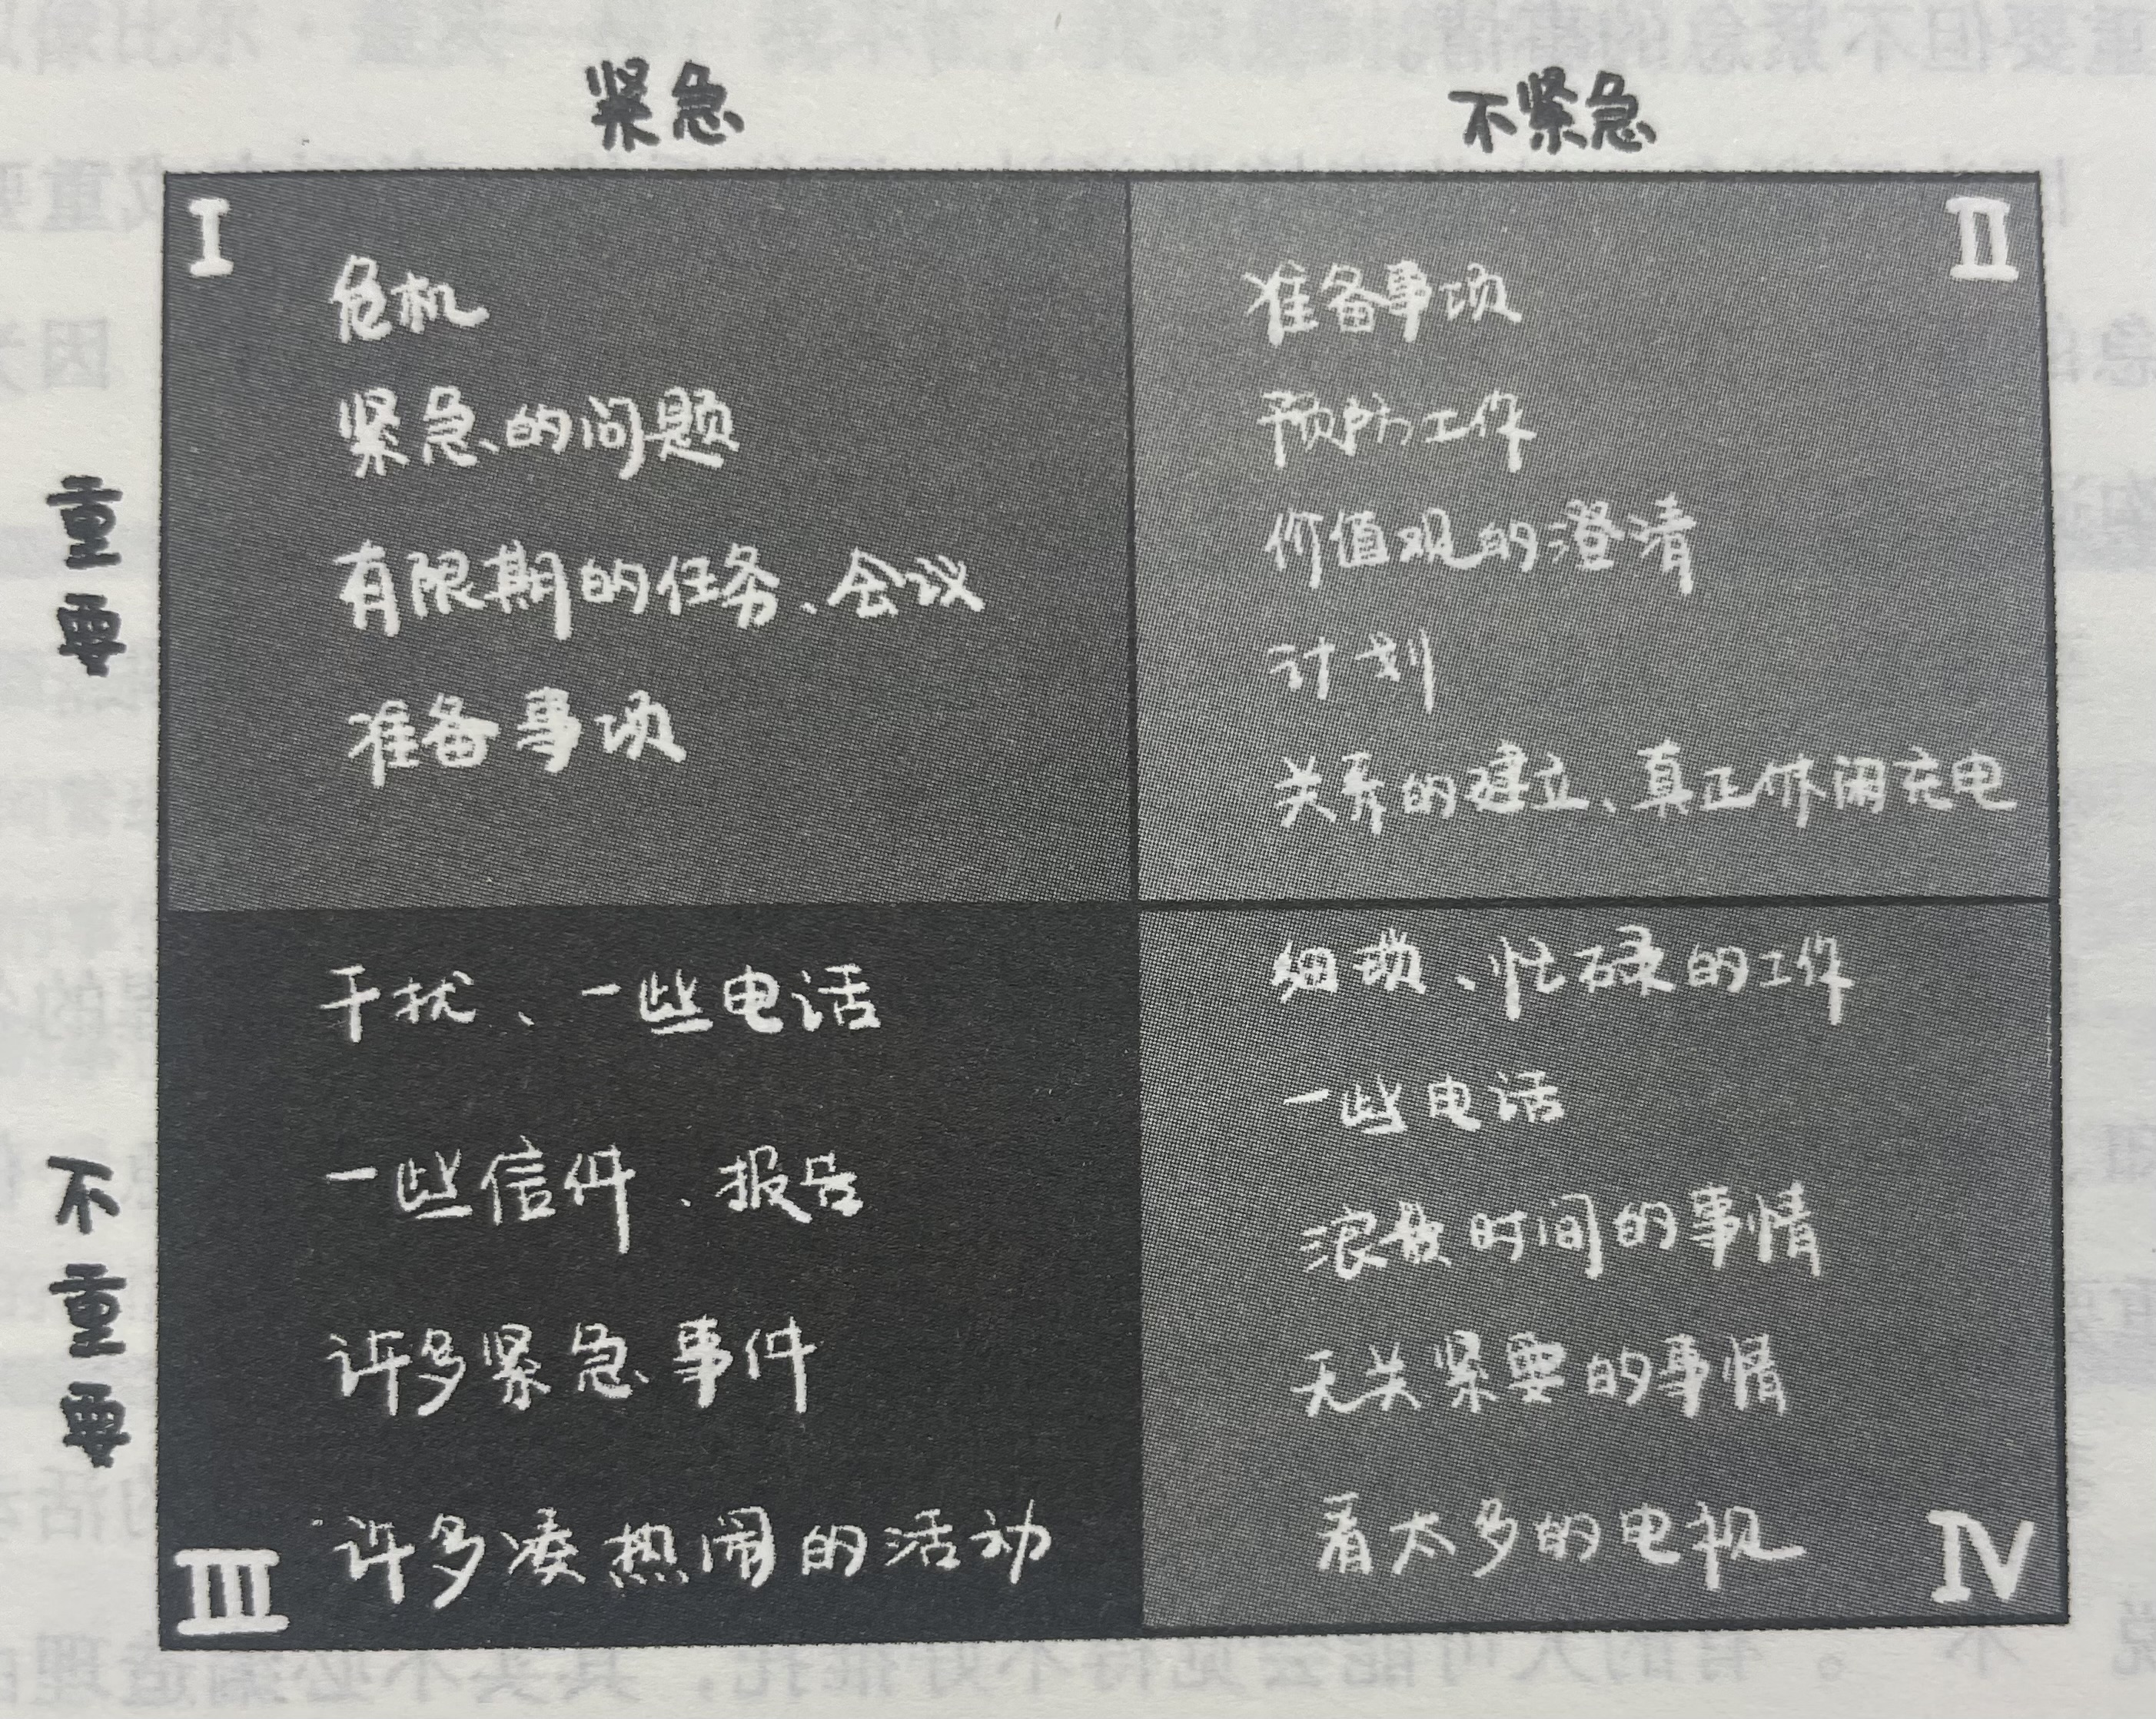 重要但不紧急的事情
紧急
不紧急
I
II
重要
危机
紧急的问题
有限期的任务、会议
准备事项
准备事项
预防工作
价值观的澄清
计划
关系的建立、真正休闲充电
不重要
干扰、一些电话
一些信件、报告
许多紧急事件
许多凑热闹的活动
III
细琐、忙碌的工作
一些电话
浪费时间的事情
无关紧要的事情
看太多的电视
IV